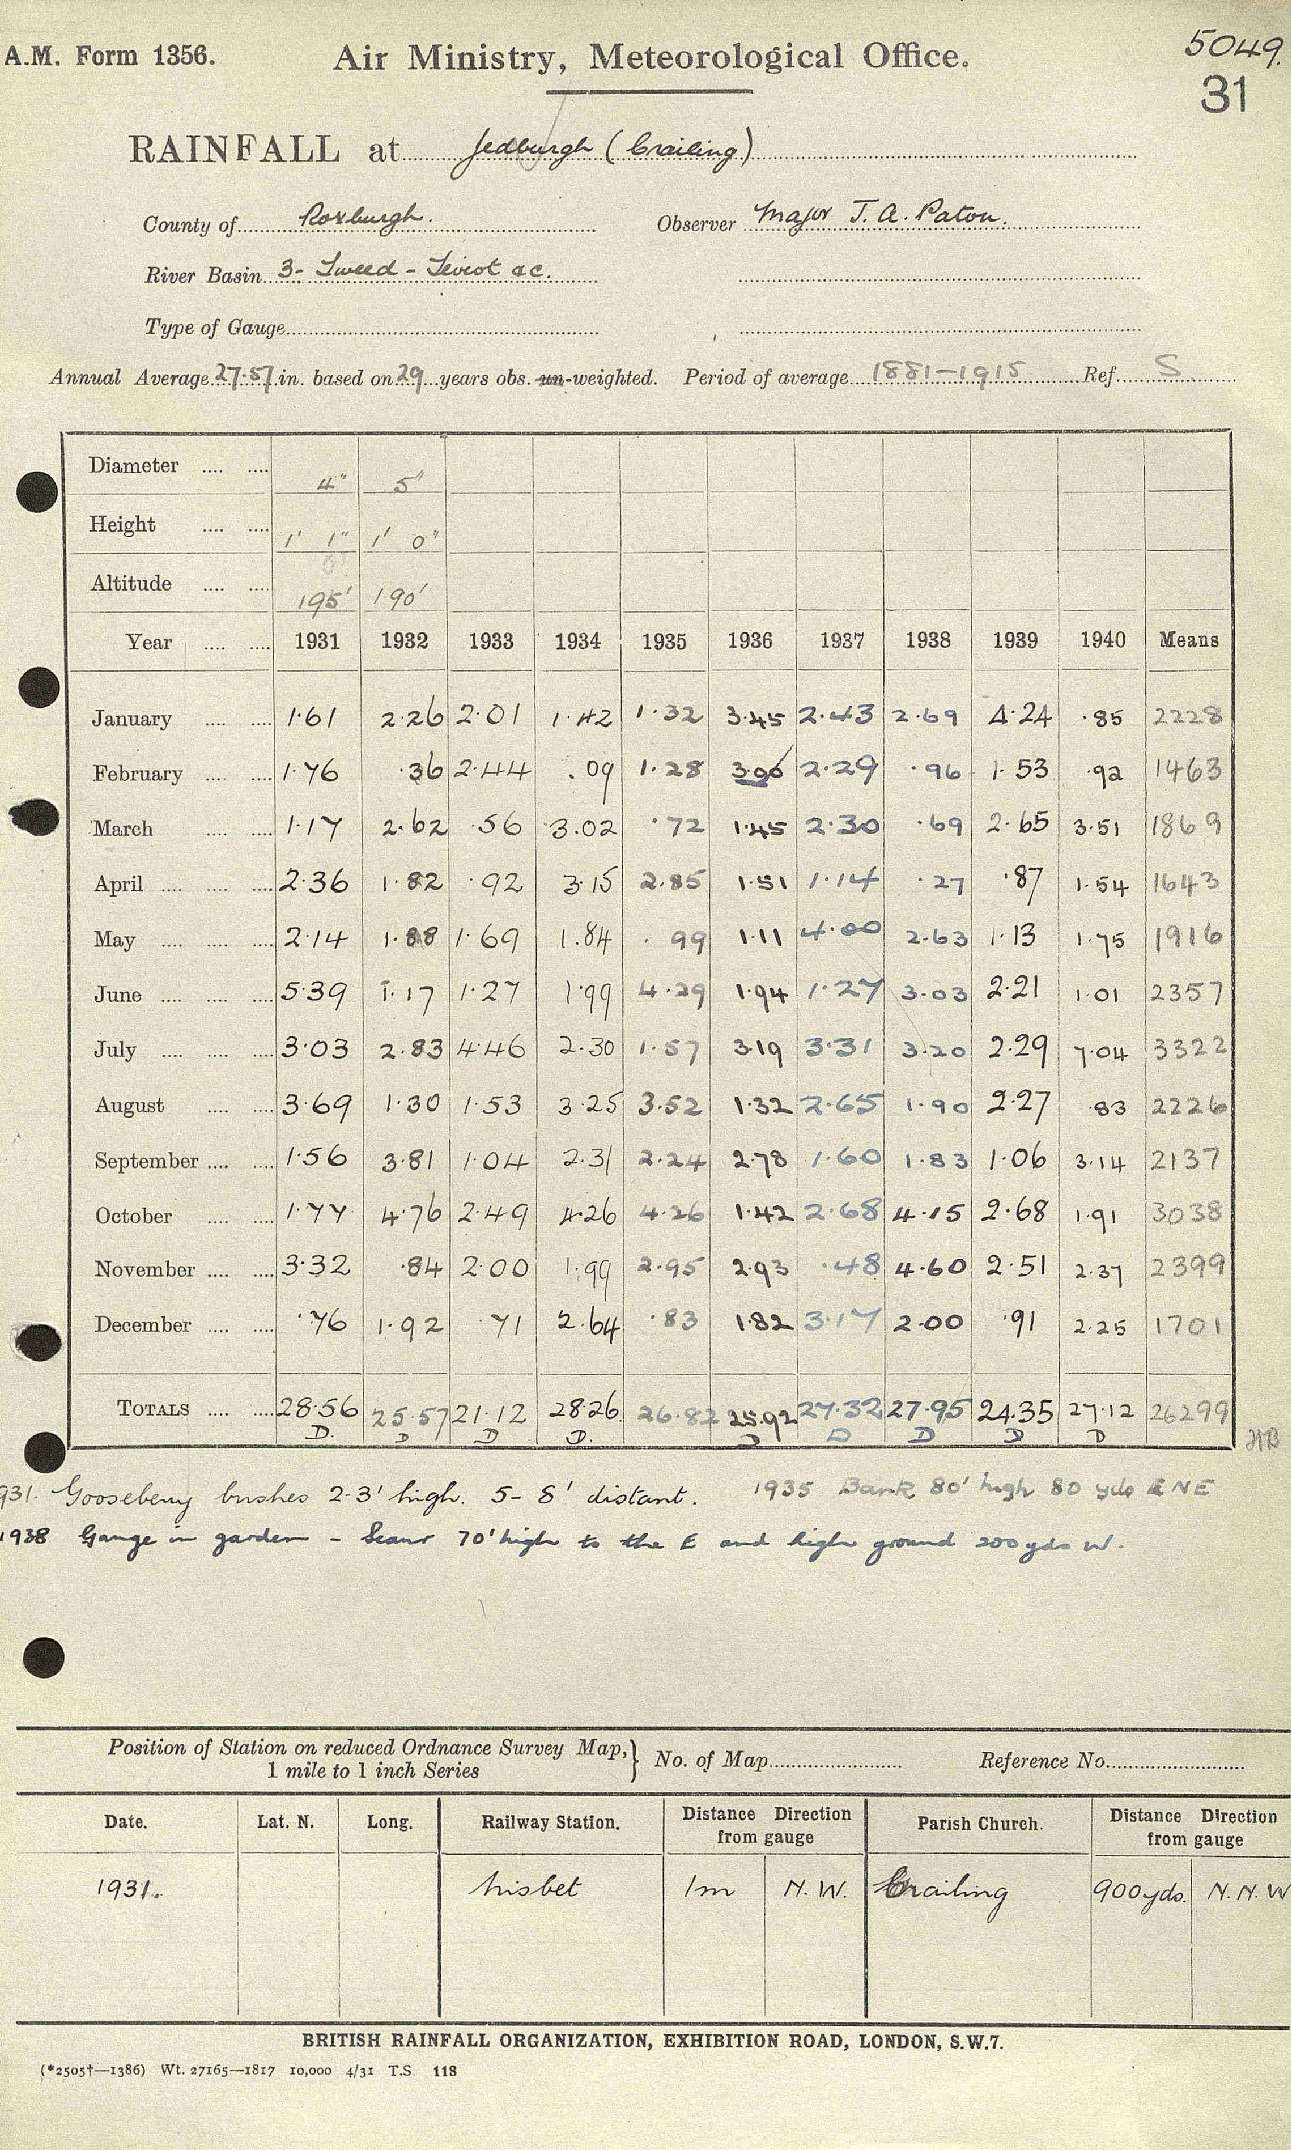 A.M. Form 1356. Air Ministry, Meteorological Office. 5049.
31
RAINFALL at Jedburgh (Crailing)
County of Roxburgh. Observer Major J. A. Paton.
River Basin 3- Tweed - Teviot &c.
Type of Gauge
Annual Average 27.57 in. based on 29 years obs. un-weighted. Period of average 1881-1915 Ref. S
Diameter .... .... 4" 5"
Height .... .... 1' 1" 1' 0"
Altitude .... .... 195' 190'
Year .... .... 1931 1932 1933 1934 1935 1936 1937 1938 1939 1940 Means
January .... .... 1.61 2.26 2.01 1.42 1.32 3.45 2.43 2.69 4.24 .85 2228
February .... .... 1.76 .36 2.44 .09 1.28 3.00 2.29 .96 1.53 .92 1463
March .... .... 1.17 2.62 .56 3.02 .72 1.45 2.30 .69 2.65 3.51 1869
April .... .... .... 2.36 1.82 .92 3.15 2.85 1.51 1.14 .27 .87 1.54 1643
May .... .... .... 2.14 1.88 1.69 1.84 .99 1.11 4.00 2.63 1.13 1.75 1916
June .... .... .... 5.39 1.17 1.27 1.99 4.29 1.94 1.27 3.03 2.21 1.01 2357
July .... .... .... 3.03 2.83 4.46 2.30 1.57 3.19 3.31 3.20 2.29 7.04 3322
August .... .... 3.69 1.30 1.53 3.25 3.52 1.32 2.65 1.90 2.27 .83 2226
September .... .... 1.56 3.81 1.04 2.31 2.24 2.78 1.60 1.83 1.06 3.14 2137
October .... .... 1.77 4.76 2.49 4.26 4.26 1.42 2.68 4.15 2.68 1.91 3038
November .... .... 3.32 .84 2.00 1.99 2.95 2.93 .48 4.60 2.51 2.37 2399
December .... .... .76 1.92 .71 2.64 .83 1.82 3.17 2.00 .91 2.25 1701
TOTALS .... .... 28.56 25.57 21.12 28.26 26.82 25.92 27.32 27.95 24.35 27.12 26299
D. D D D. D D D D D
1931. Gooseberry bushes 2-3' high. 5-8' distant. 1935 Bank 80' high 80 yds ENE
1938 Gauge in garden - Scaur 70' high to the E and high ground 200 yds W.
Position of Station on reduced Ordnance Survey Map, 1 mile to 1 inch Series } No. of Map Reference No.
Date. Lat. N. Long. Railway Station. Distance Direction from gauge Parish Church. Distance Direction from gauge
1931. Nisbet 1m N.W. Crailing 900 yds. N.N.W
BRITISH RAINFALL ORGANIZATION, EXHIBITION ROAD, LONDON, S.W.7.
(*2505†—1386) Wt. 27165—1817 10,000 4/31 T.S. 118